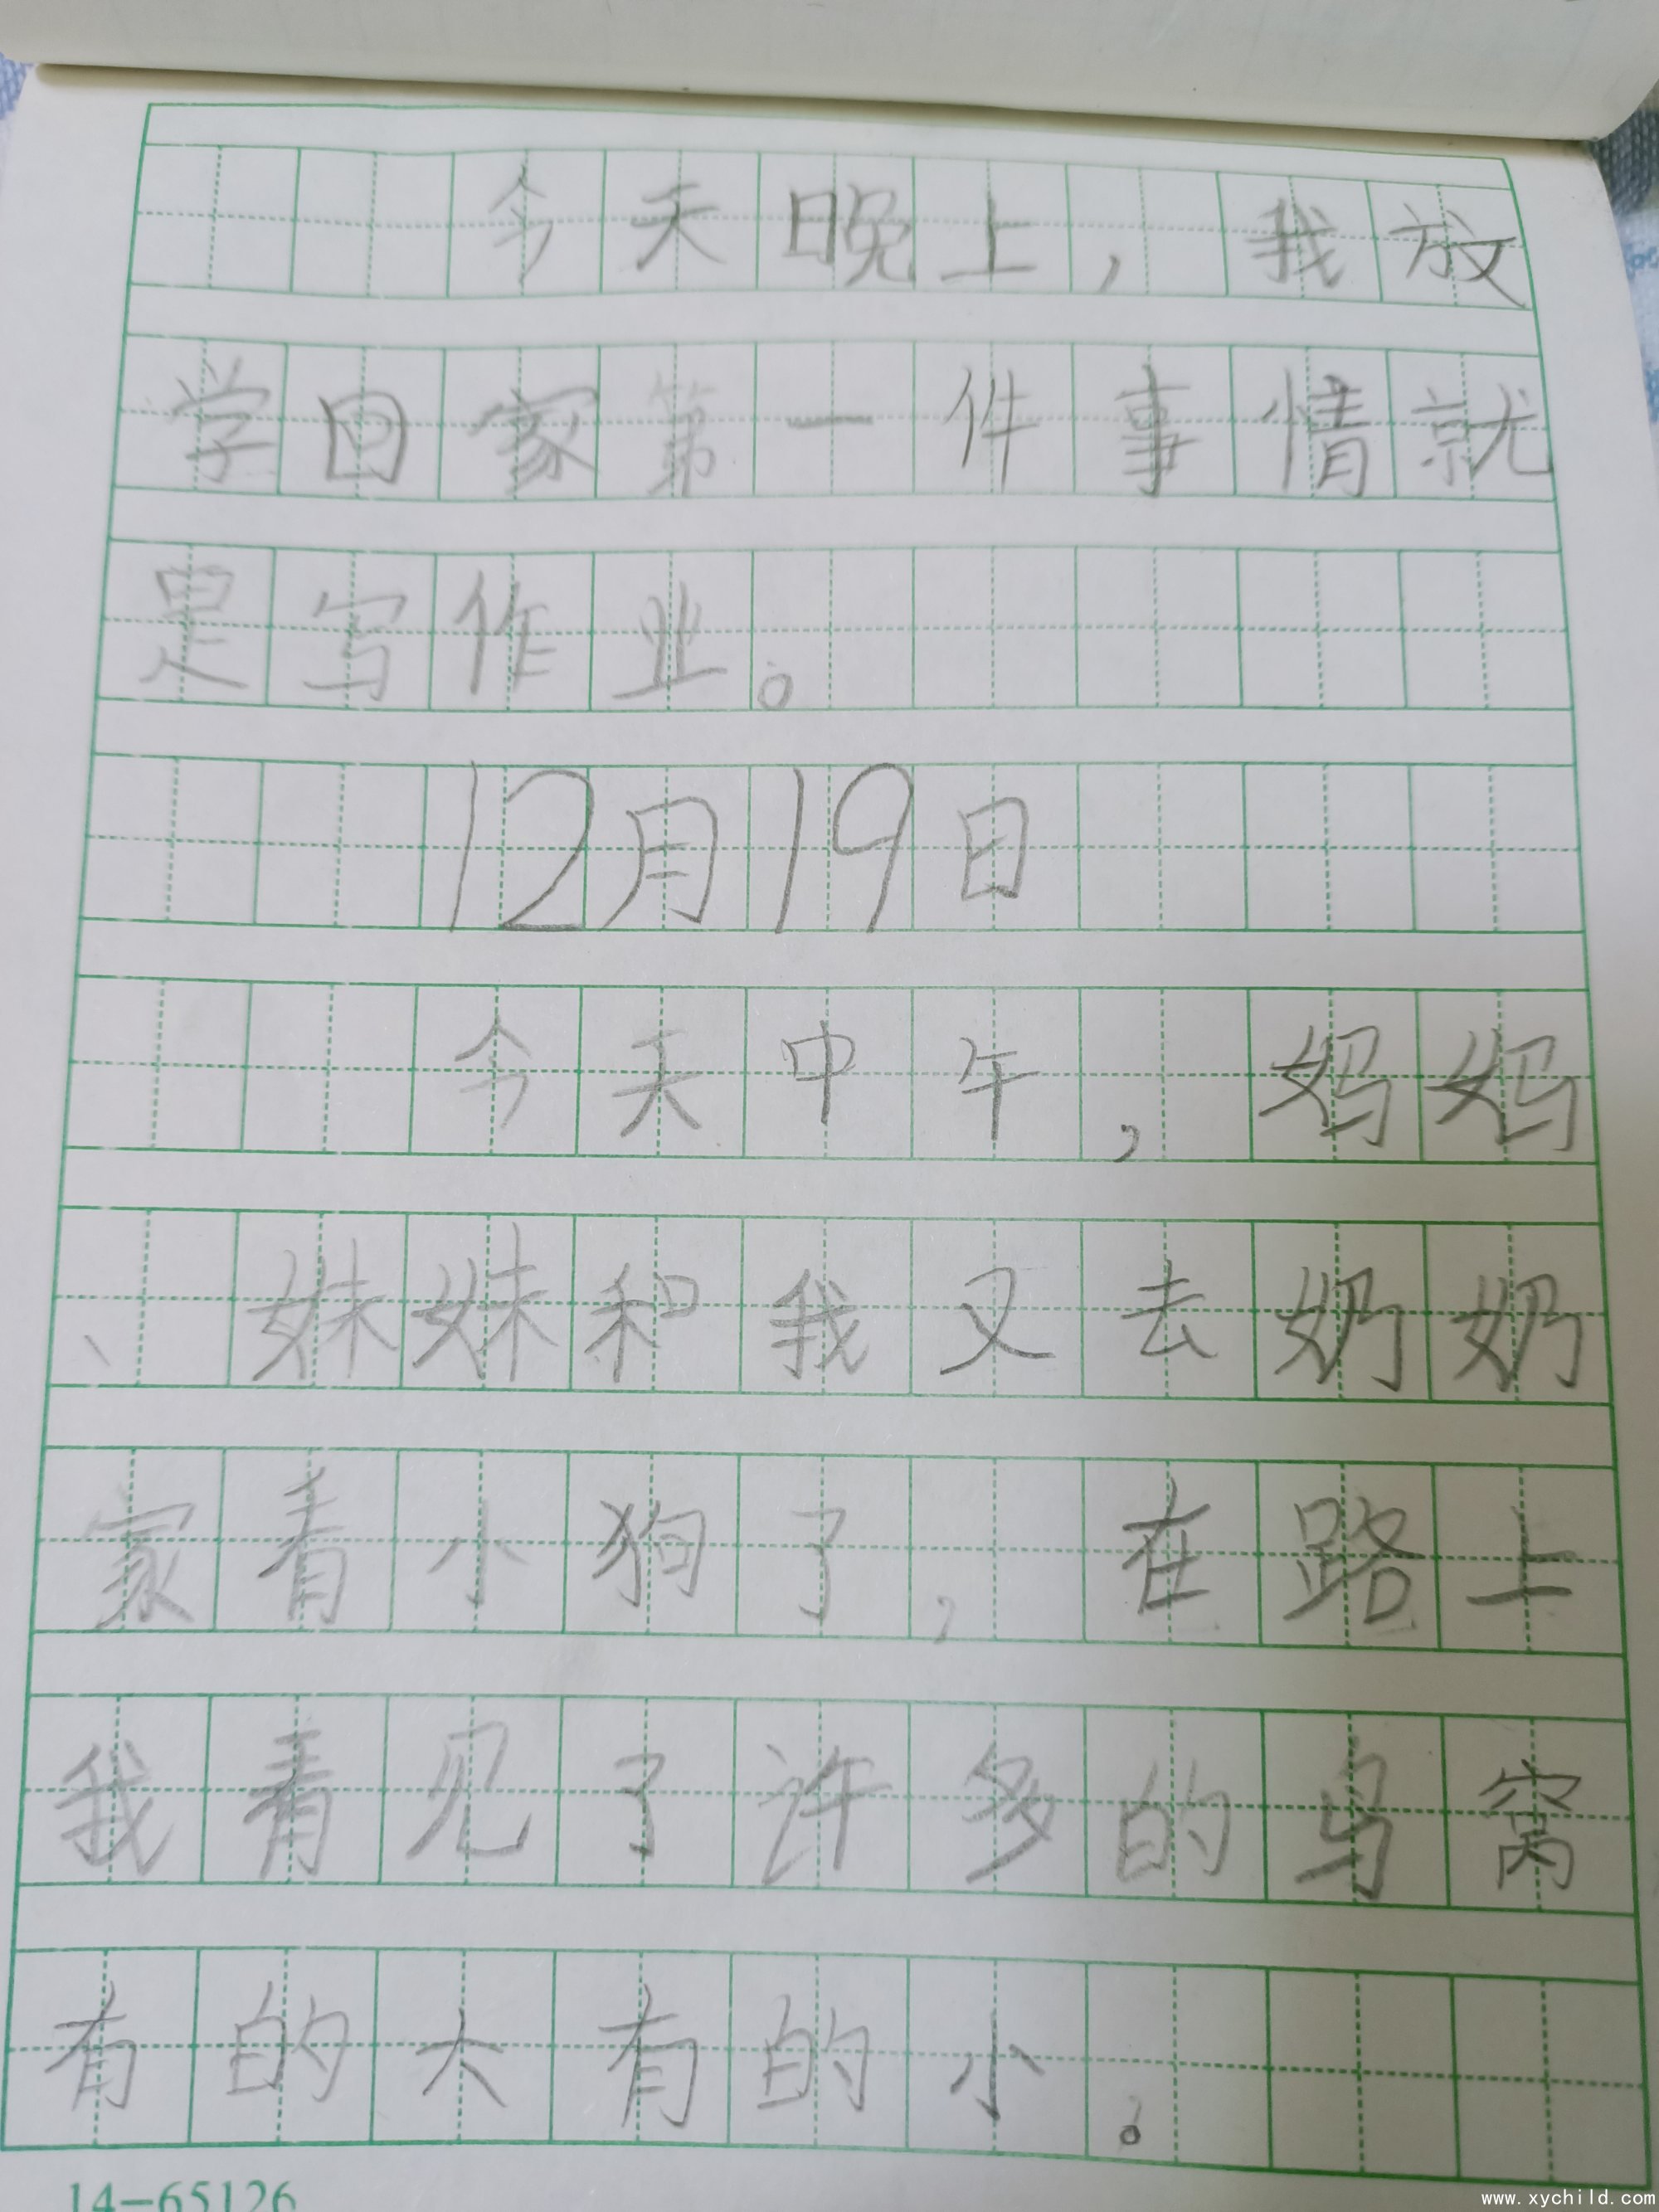 今天晚上，我放
学回家第一件事情就
是写作业。
12月19日
今天中午，妈妈
、妹妹和我又去奶奶
家看小狗了，在路上
我看见了许多的鸟窝
有的大有的小。
14-65126
www.xychild.com